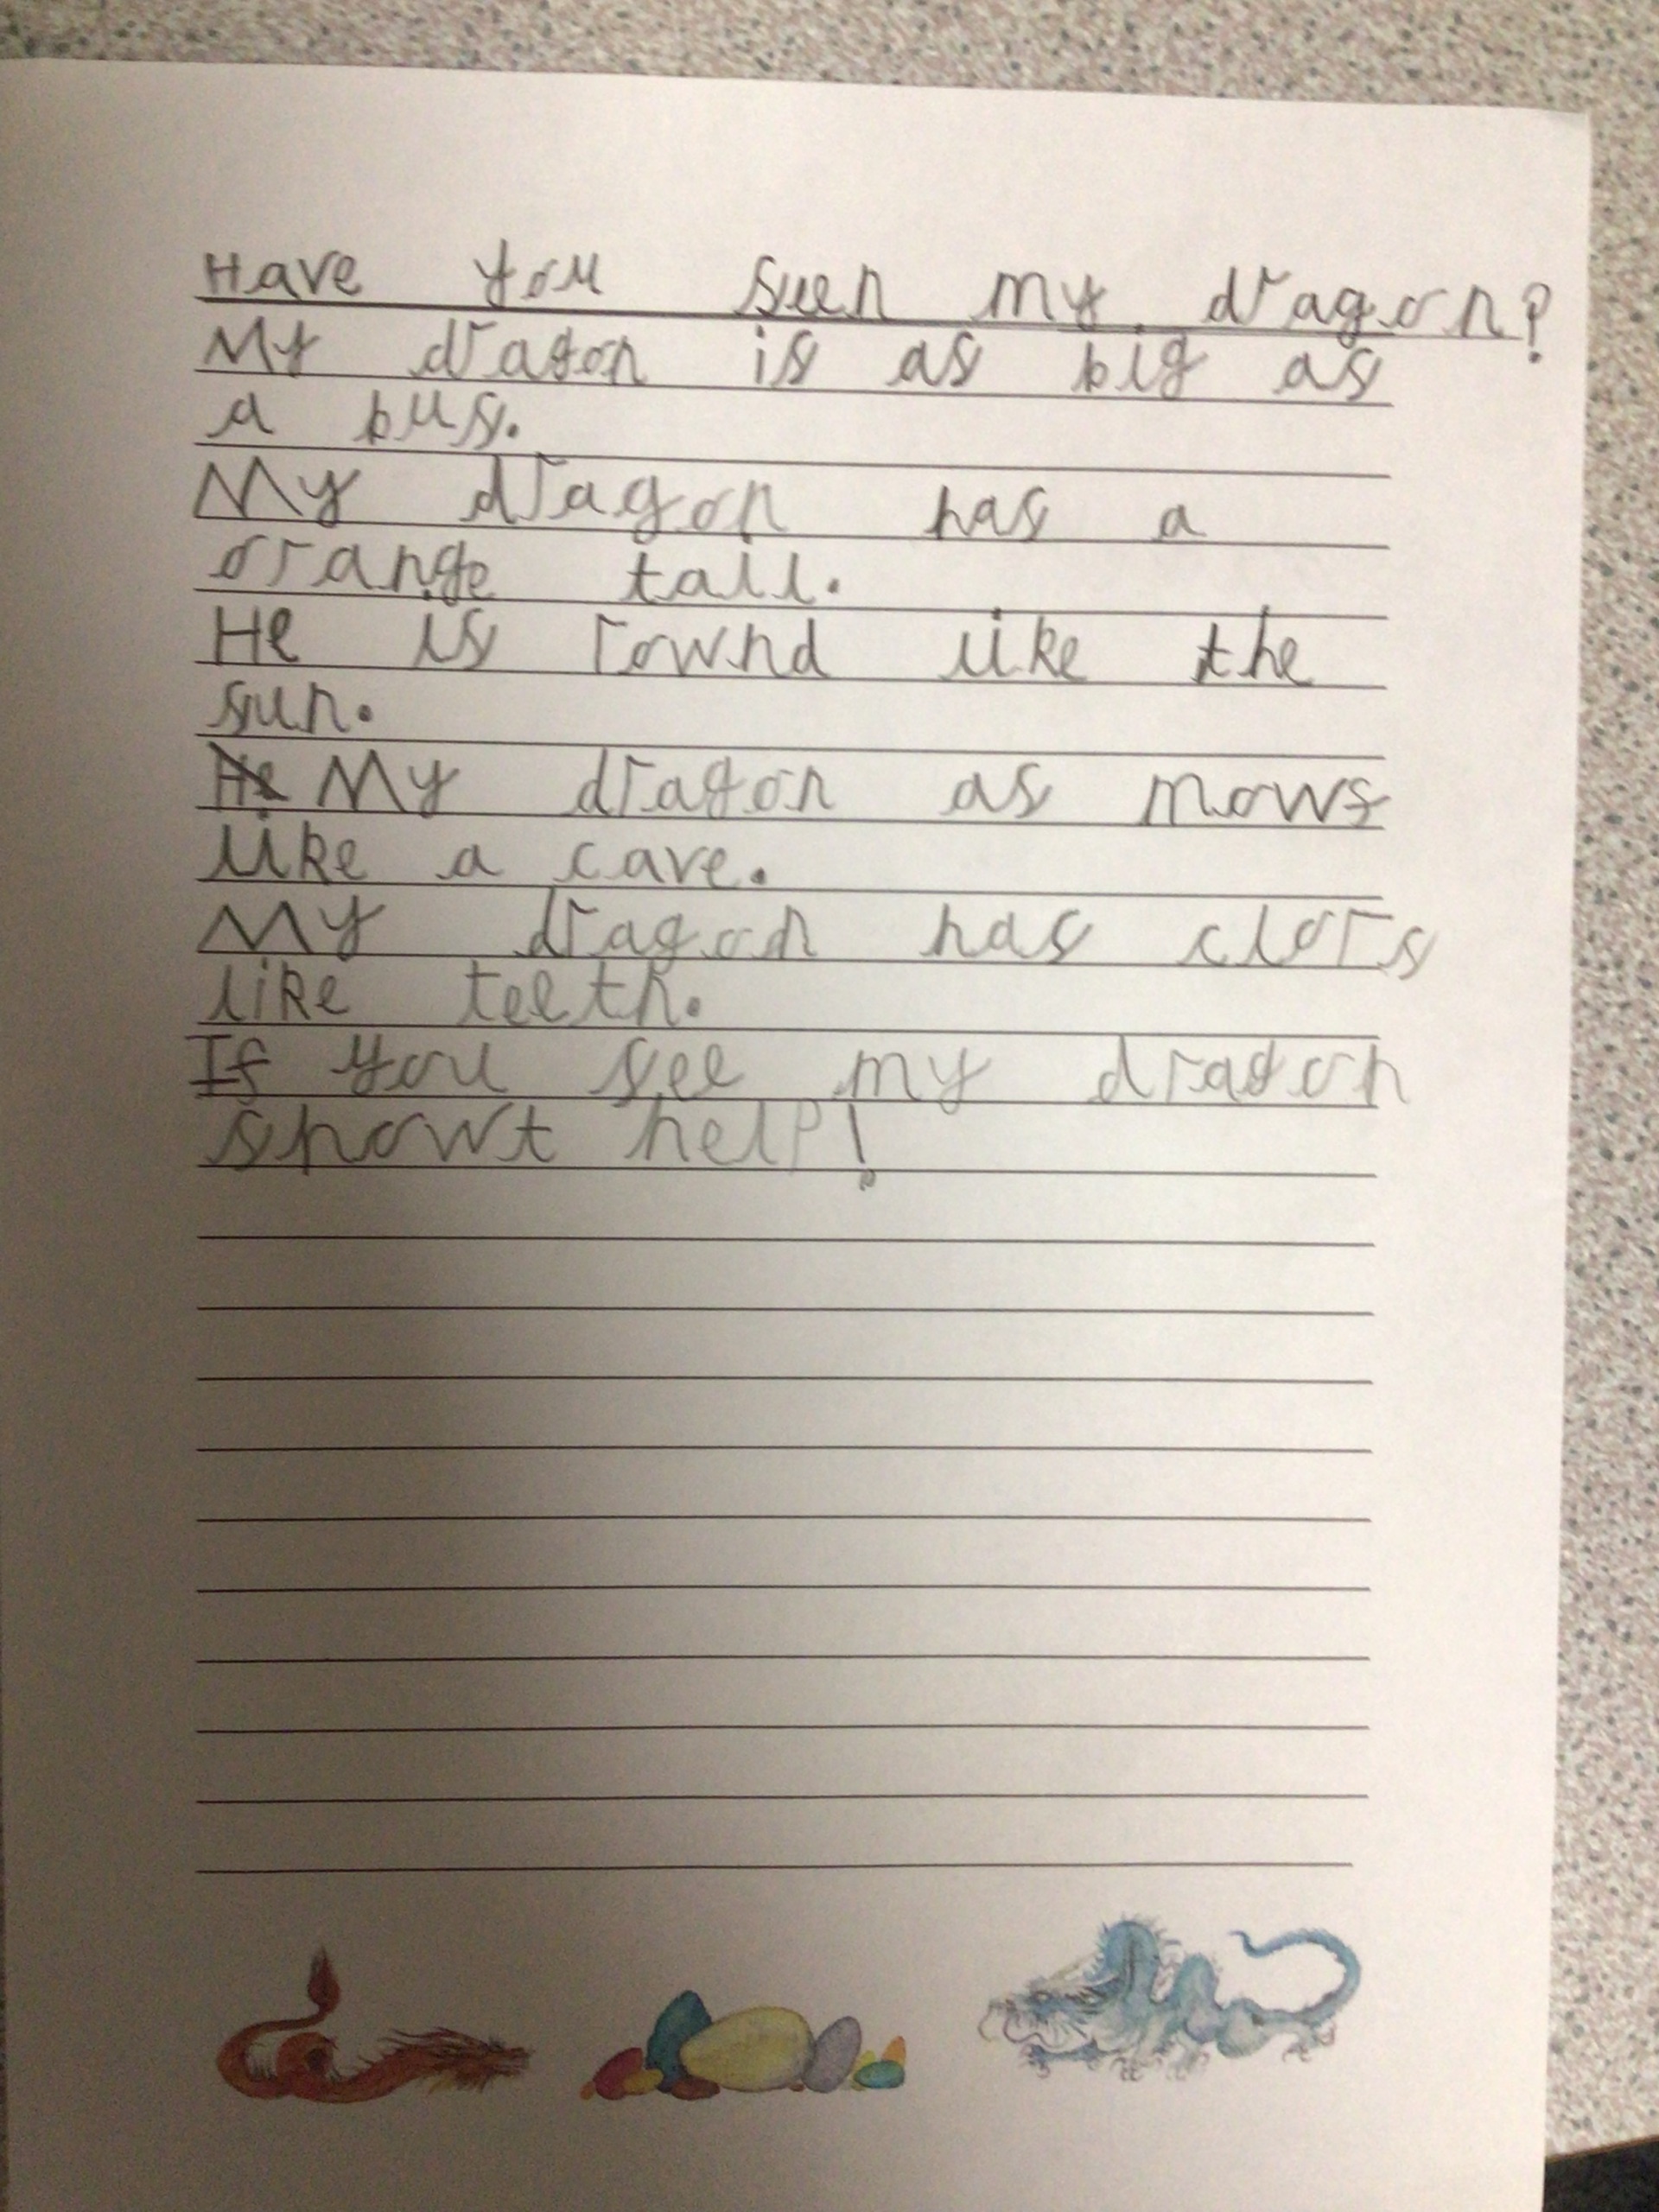 Have you seen my dragon?
My dragon is as big as
a bus.
My dragon has a
orange tail.
He is rownd like the
sun.
He My dragon as mows
like a cave.
My dragon has clors
like teeth.
If you see my dragon
showt help!